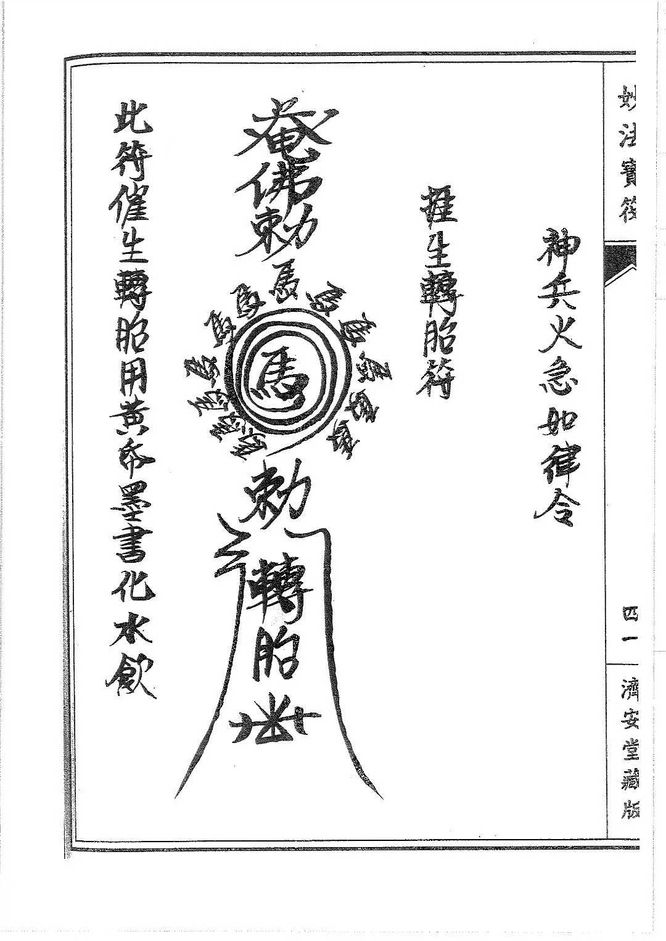 妙法寶筏
四一
濟安堂藏版
神兵火急如律令
摧生轉胎符
奄佛勅
馬
馬
勅
轉胎
此符催生轉胎用黃帋墨書化水飲